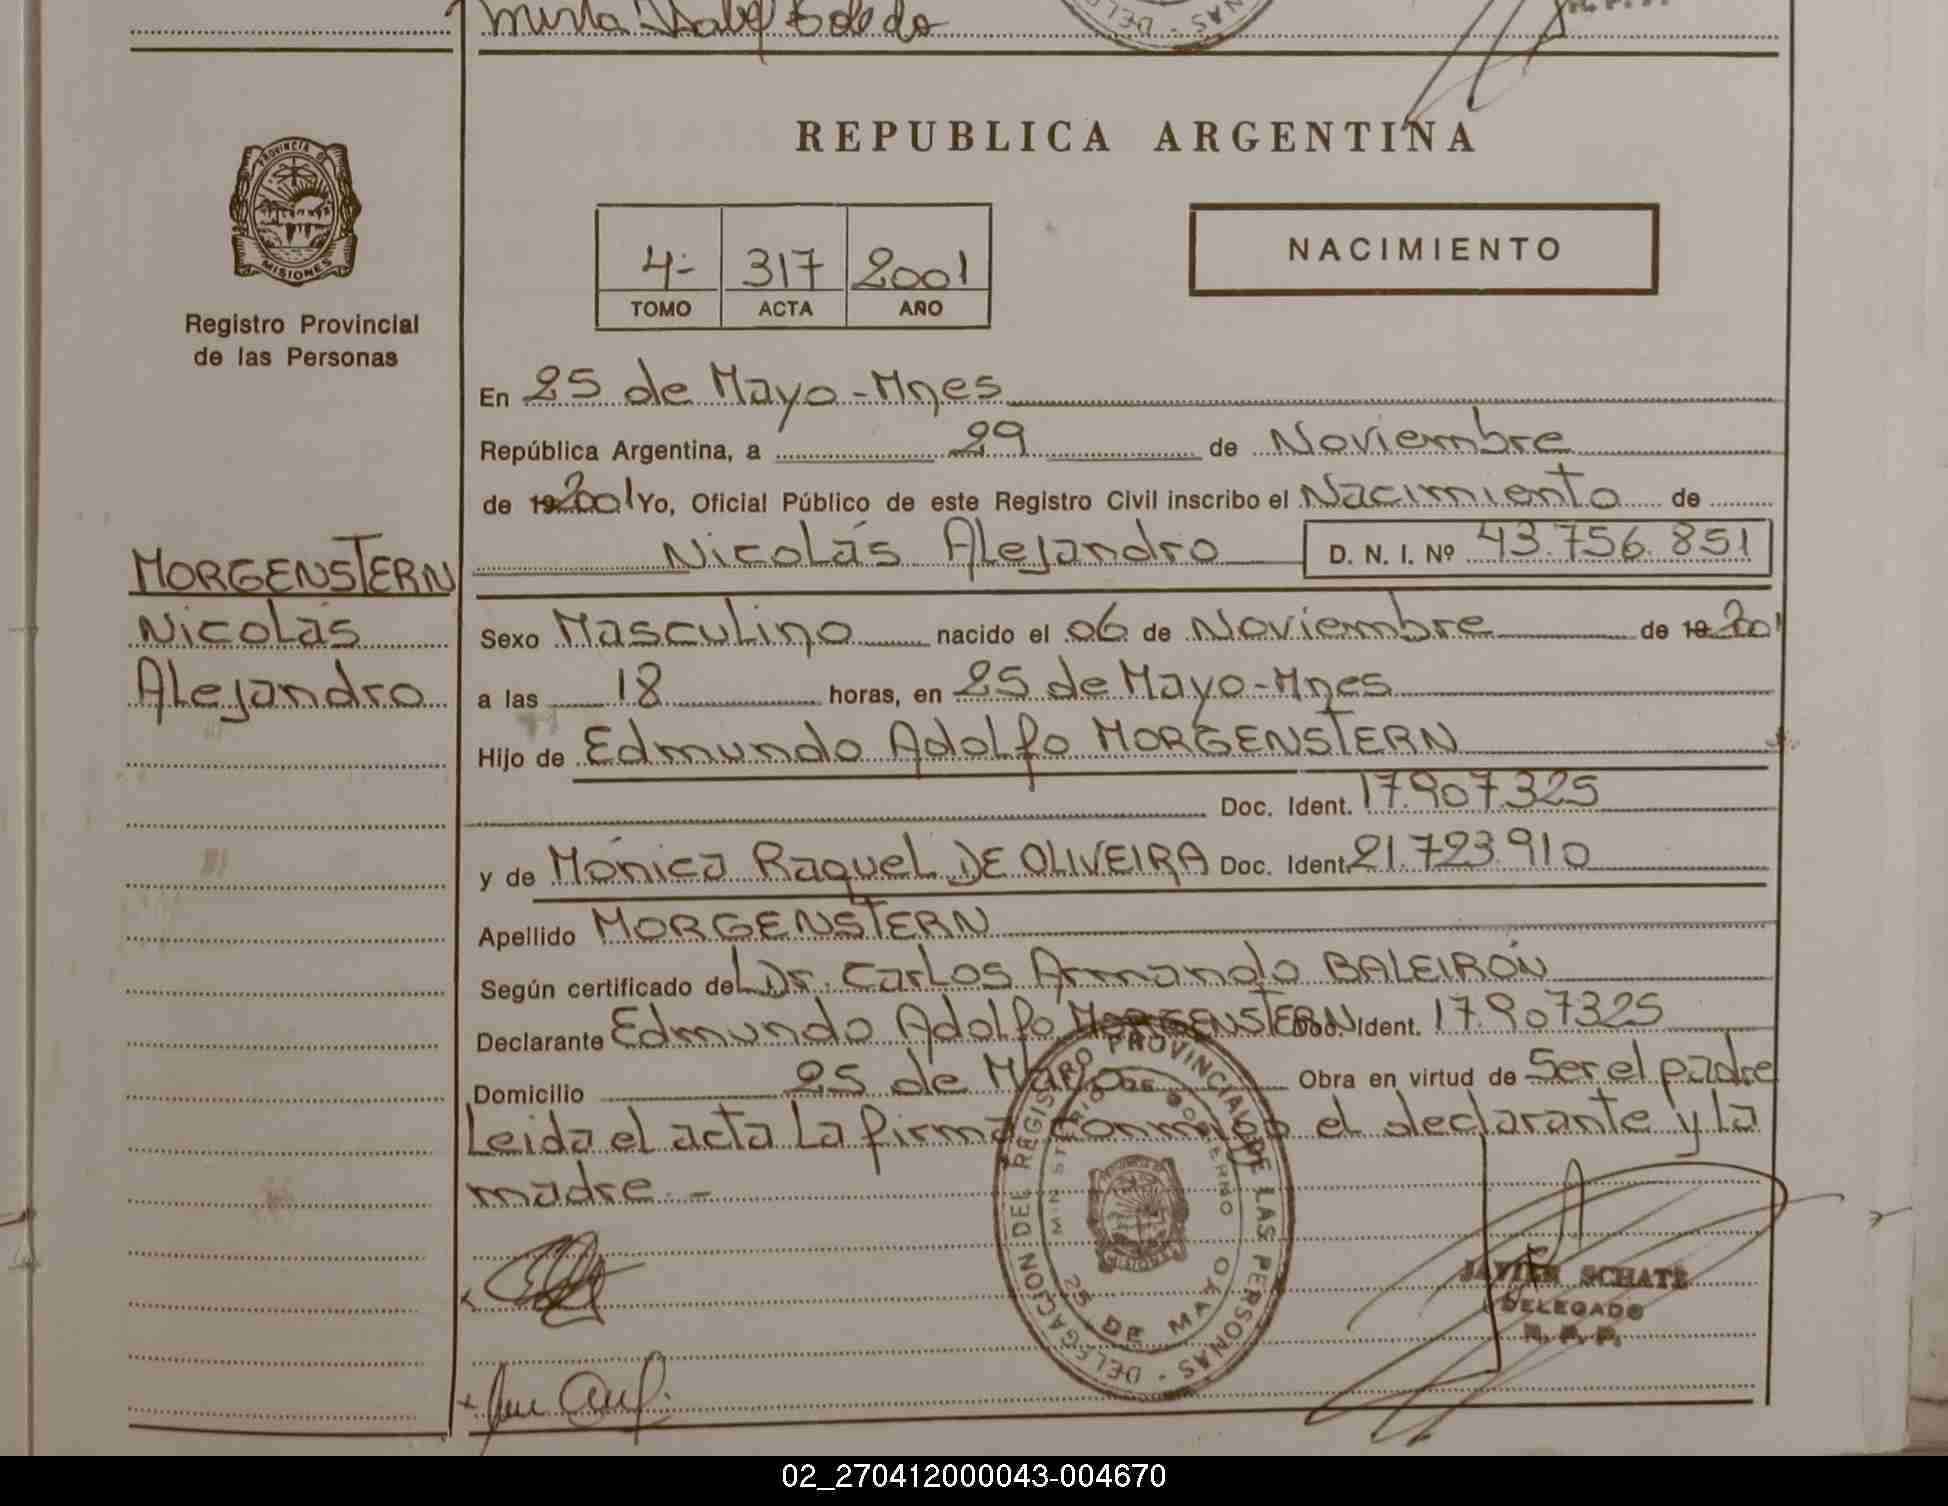 Mirta Isabel Toledo
REPUBLICA ARGENTINA
PROVINCIA DE
MISIONES
Registro Provincial
de las Personas
4- 317 2001
TOMO ACTA AÑO
NACIMIENTO
En 25 de Mayo-Mnes
República Argentina, a 29 de Noviembre
de 2001 Yo, Oficial Público de este Registro Civil inscribo el Nacimiento de
Nicolás Alejandro D. N. I. Nº 43.756.851
MORGENSTERN
Nicolás
Alejandro
Sexo Masculino nacido el 06 de Noviembre de 2001
a las 18 horas, en 25 de Mayo-Mnes
Hijo de Edmundo Adolfo MORGENSTERN
Doc. Ident. 17.907.325
y de Mónica Raquel DE OLIVEIRA Doc. Ident. 21.723.910
Apellido MORGENSTERN
Según certificado del Dr. Carlos Armando BALEIRÓN
Declarante Edmundo Adolfo MORGENSTERN Doc. Ident. 17.907325
Domicilio 25 de Mayo Obra en virtud de Ser el padre
Leida el acta La firma conmigo el declarante y la
madre.-
DELEGACION DEL REGISTRO PROVINCIAL DE LAS PERSONAS
MINISTERIO DE GOBIERNO
MISIONES
25 DE MAYO
JAVIER SCHATZ
DELEGADO
R. P. P.
02_270412000043-004670